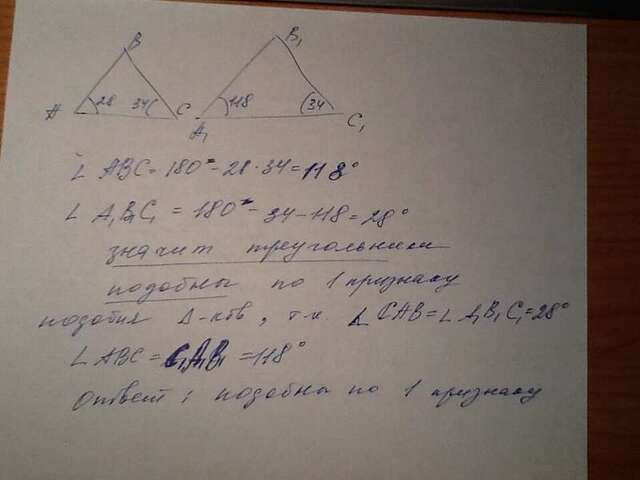 B B₁
A 28 34 C A₁ 118 34 C₁
∠ ABC = 180° - 28 - 34 = 118°
∠ A₁B₁C₁ = 180° - 34 - 118 = 28°
значит треугольники
подобны по 1 признаку
подобия Δ-ков, т.к. ∠ CAB = ∠ A₁B₁C₁ = 28°
∠ ABC = C₁A₁B₁ = 118°
Ответ: подобны по 1 признаку